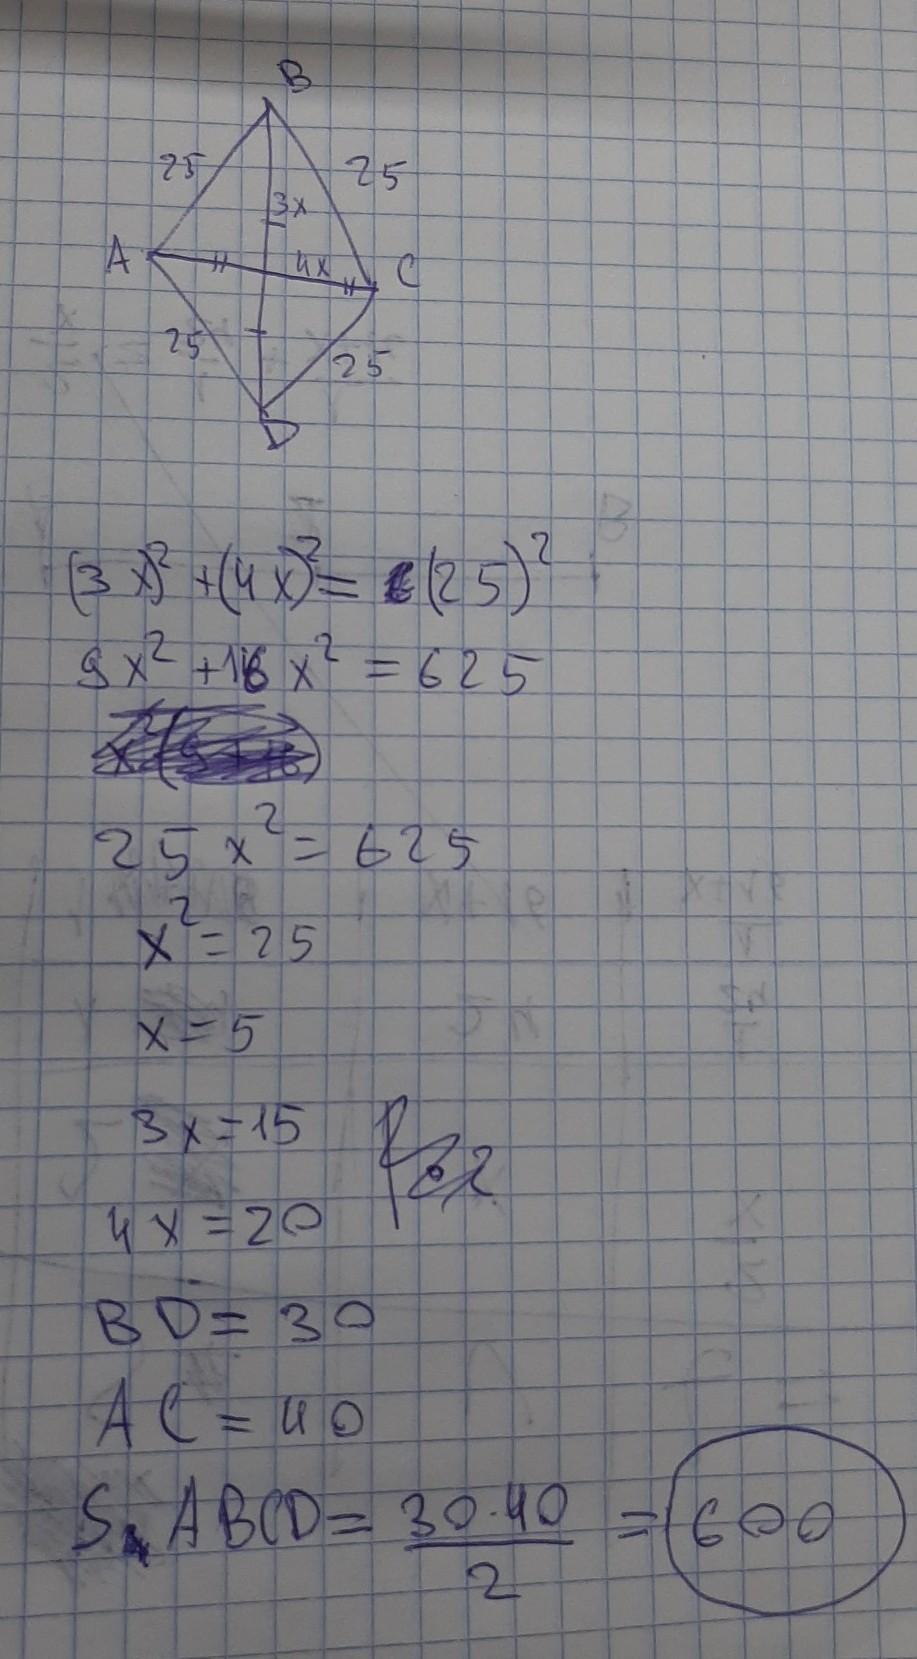 B
25 25
3x
A 4x C
25 25
D
(3x)² + (4x)² = (25)²
9x² + 16x² = 625
25x² = 625
x² = 25
x = 5
3x = 15
4x = 20
BD = 30
AC = 40
S ABCD = 30·40 / 2 = 600